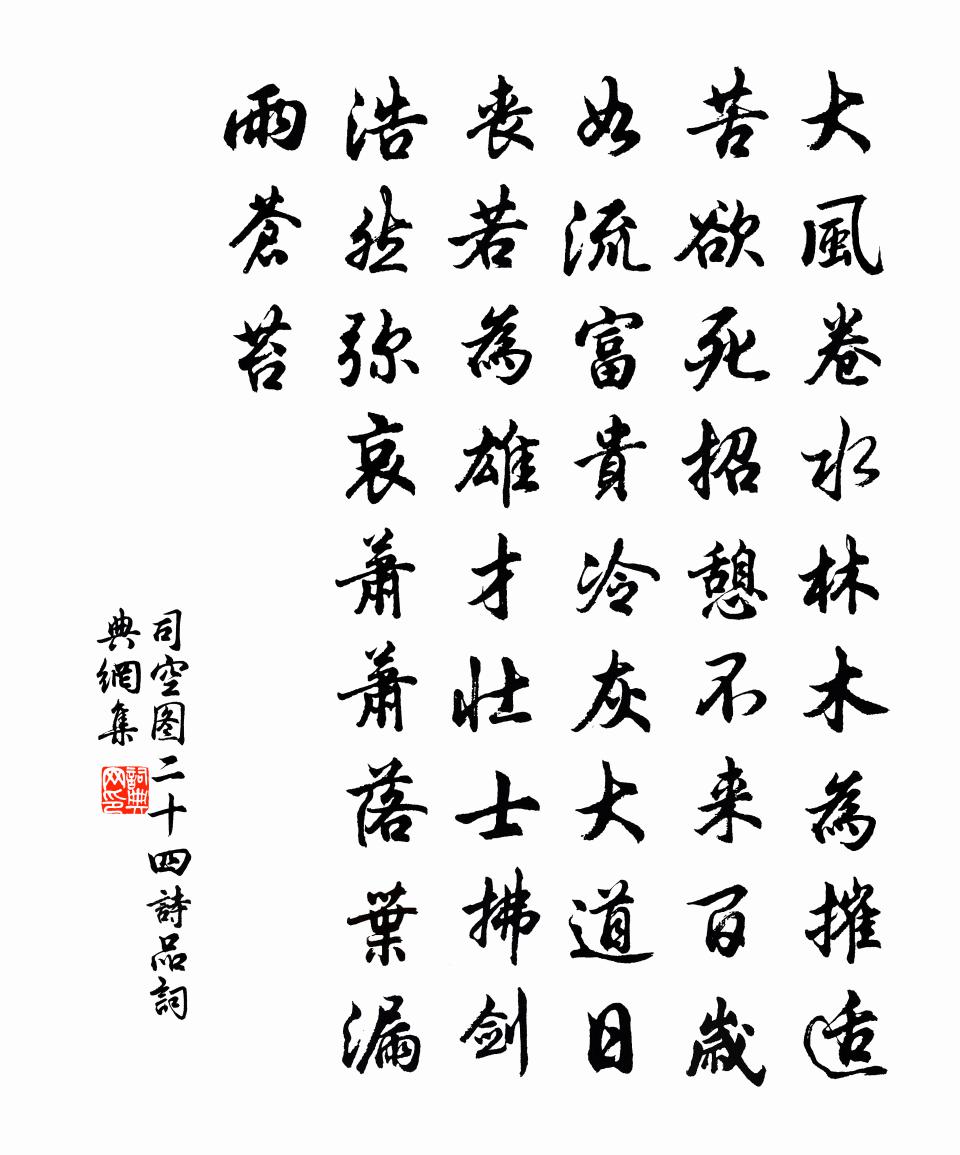 大風卷水林木為摧适
苦欲死招憩不来百歲
如流富貴冷灰大道日
喪若為雄才壯士拂劍
浩然弥哀蕭蕭落葉漏
雨蒼苔
司空图二十四詩品詞
典網集
詞典
网印